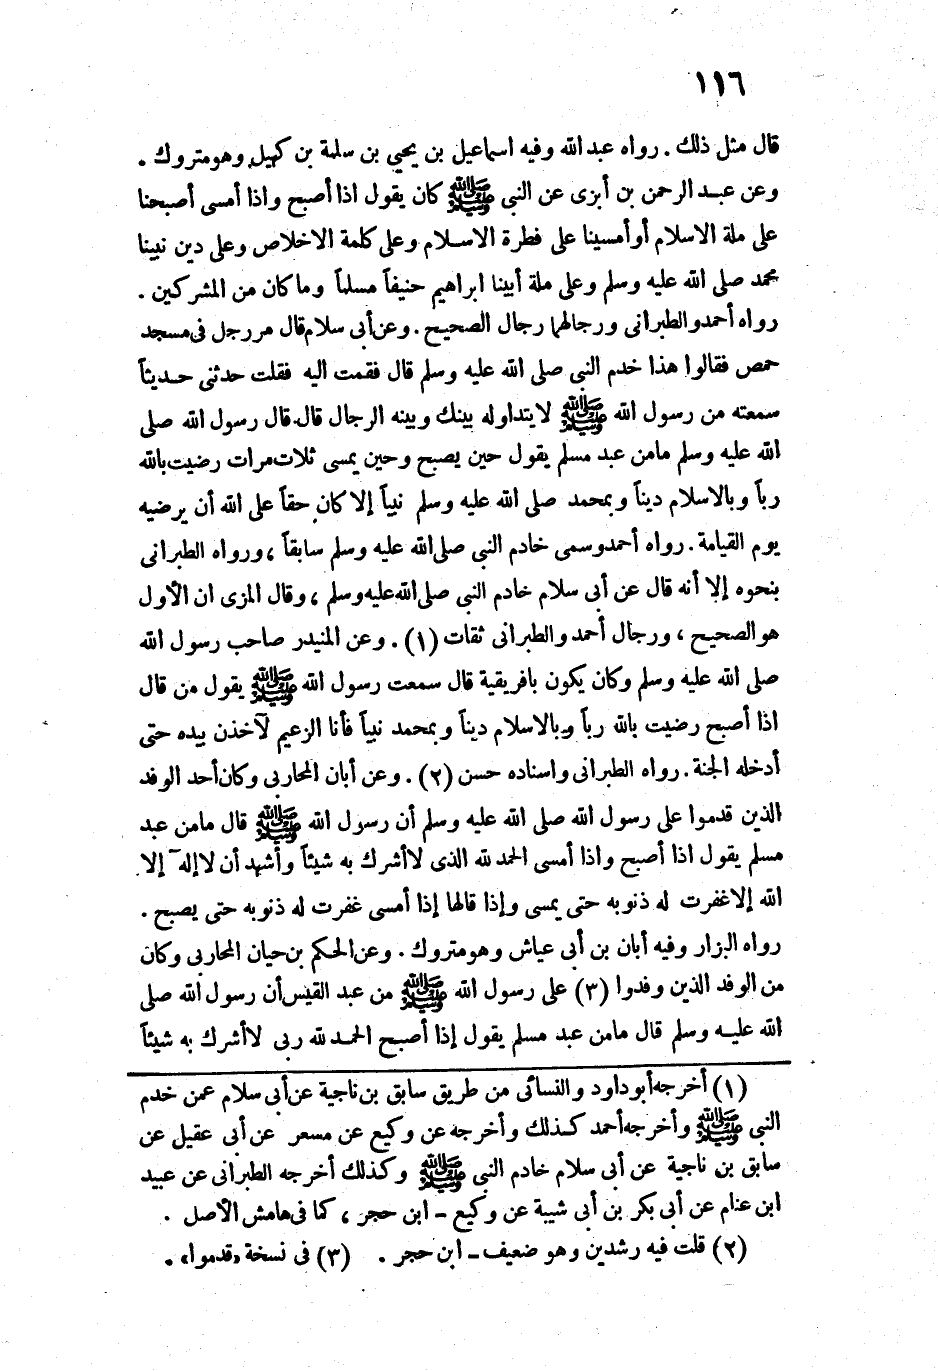 ١١٦
قال مثل ذلك . رواه عبد الله وفيه اسماعيل بن يحيي بن سلمة بن كهيل وهو متروك .
وعن عبد الرحمن بن أبزى عن النبي ﷺ كان يقول اذا أصبح واذا أمسى أصبحنا
على ملة الاسلام أو أمسينا على فطرة الاسلام وعلى كلمة الاخلاص وعلى دين نبينا
محمد صلى الله عليه وسلم وعلى ملة أبينا ابراهيم حنيفاً مسلماً وما كان من المشركين .
رواه أحمد والطبراني ورجالهما رجال الصحيح . وعن أبي سلام قال مر رجل في مسجد
حمص فقالوا هذا خدم النبي صلى الله عليه وسلم قال فقمت اليه فقلت حدثني حديثاً
سمعته من رسول الله ﷺ لا يتداوله بينك وبينه الرجال قال قال رسول الله صلى
الله عليه وسلم مامن عبد مسلم يقول حين يصبح وحين يمسى ثلاث مرات رضيت بالله
رباً وبالاسلام ديناً وبمحمد صلى الله عليه وسلم نبياً إلا كان حقاً على الله أن يرضيه
يوم القيامة . رواه أحمد وسمى خادم النبي صلى الله عليه وسلم سابقاً ، ورواه الطبراني
بنحوه إلا أنه قال عن أبي سلام خادم النبي صلى الله عليه وسلم ، وقال المزى ان الأول
هو الصحيح ، ورجال أحمد والطبراني ثقات (١) . وعن المنيدر صاحب رسول الله
صلى الله عليه وسلم وكان يكون بافريقية قال سمعت رسول الله ﷺ يقول من قال
اذا أصبح رضيت بالله رباً وبالاسلام ديناً وبمحمد نبياً فأنا الزعيم لآخذن بيده حتى
أدخله الجنة . رواه الطبراني واسناده حسن (٢) . وعن أبان المحاربي وكان أحد الوفد
الذين قدموا على رسول الله صلى الله عليه وسلم أن رسول الله ﷺ قال مامن عبد
مسلم يقول اذا أصبح واذا أمسى الحمد لله الذى لا أشرك به شيئاً وأشهد أن لا إله إلا
الله إلا غفرت له ذنوبه حتى يمسى وإذا قالها إذا أمسى غفرت له ذنوبه حتى يصبح .
رواه البزار وفيه أبان بن أبي عياش وهو متروك . وعن الحكم بن حيان المحاربي وكان
من الوفد الذين وفدوا (٣) على رسول الله ﷺ من عبد القيس أن رسول الله صلى
الله عليه وسلم قال مامن عبد مسلم يقول إذا أصبح الحمد لله ربي لا أشرك به شيئاً
(١) أخرجه أبو داود والنسائى من طريق سابق بن ناجية عن أبي سلام عمن خدم
النبي ﷺ وأخرجه أحمد كذلك وأخرجه عن وكيع عن مسعر عن أبي عقيل عن
سابق بن ناجية عن أبي سلام خادم النبي ﷺ وكذلك أخرجه الطبراني عن عبيد
ابن غنام عن أبي بكر بن أبي شيبة عن وكيع - ابن حجر ، كما في هامش الأصل .
(٢) قلت فيه رشدين وهو ضعيف - ابن حجر . (٣) في نسخة «قدموا» .